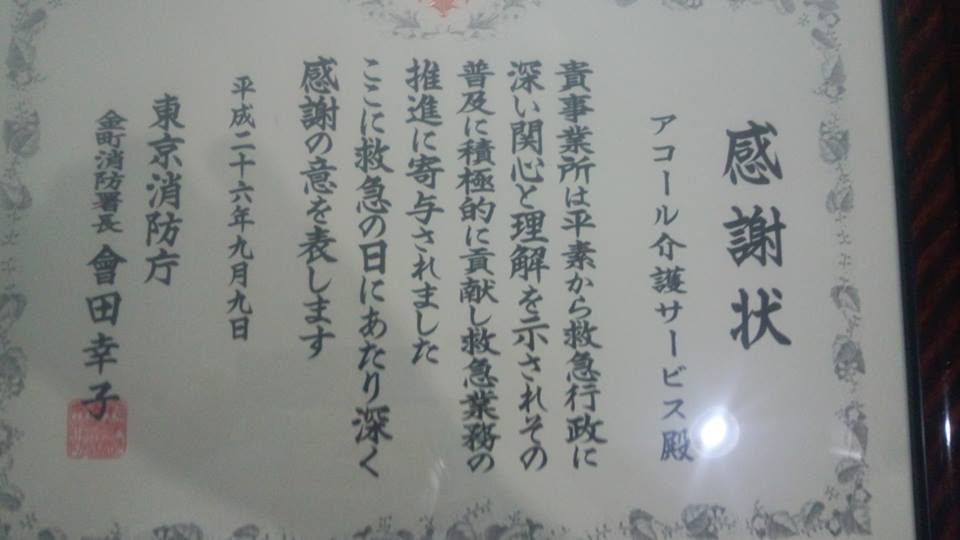 感謝状
アコール介護サービス殿
貴事業所は平素から救急行政に
深い関心と理解を示されその
普及に積極的に貢献し救急業務の
推進に寄与されました
ここに救急の日にあたり深く
感謝の意を表します
平成二十六年九月九日
東京消防庁
金町消防署長 會田幸子